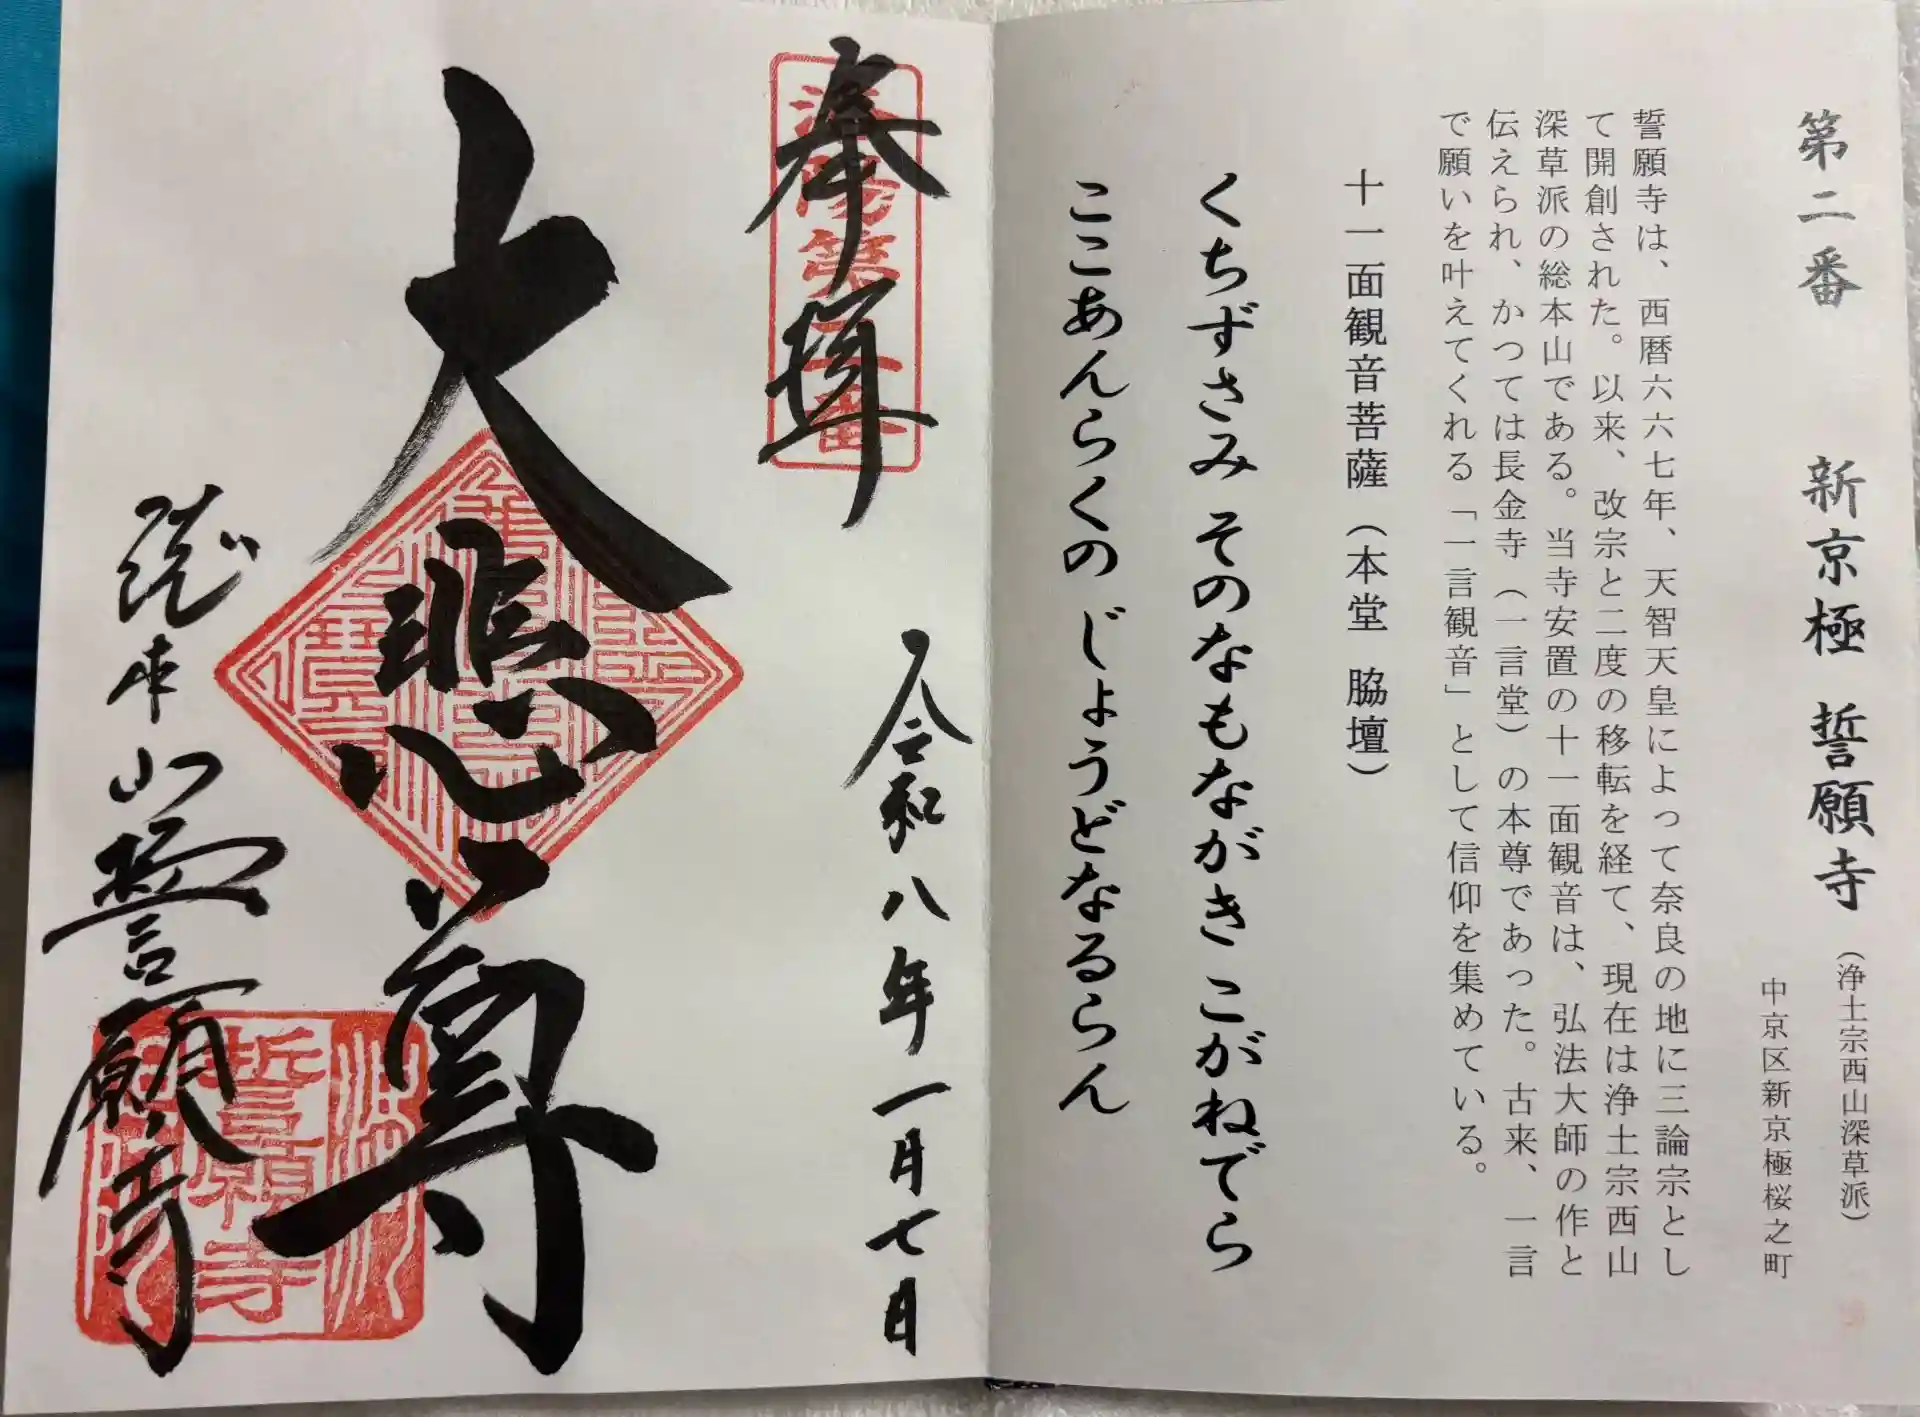 第二番 新京極 誓願寺（浄土宗西山深草派）
中京区新京極桜之町
誓願寺は、西暦六六七年、天智天皇によって奈良の地に三論宗とし
て開創された。以来、改宗と二度の移転を経て、現在は浄土宗西山
深草派の総本山である。当寺安置の十一面観音は、弘法大師の作と
伝えられ、かつては長金寺（一言堂）の本尊であった。古来、一言
で願いを叶えてくれる「一言観音」として信仰を集めている。
十一面観音菩薩（本堂 脇壇）
くちずさみ そのなもながき こがねでら
ここあんらくの じょうどなるらん
奉拝
洛陽第二番
令和八年一月七日
大悲尊
総本山誓願寺
誓願寺